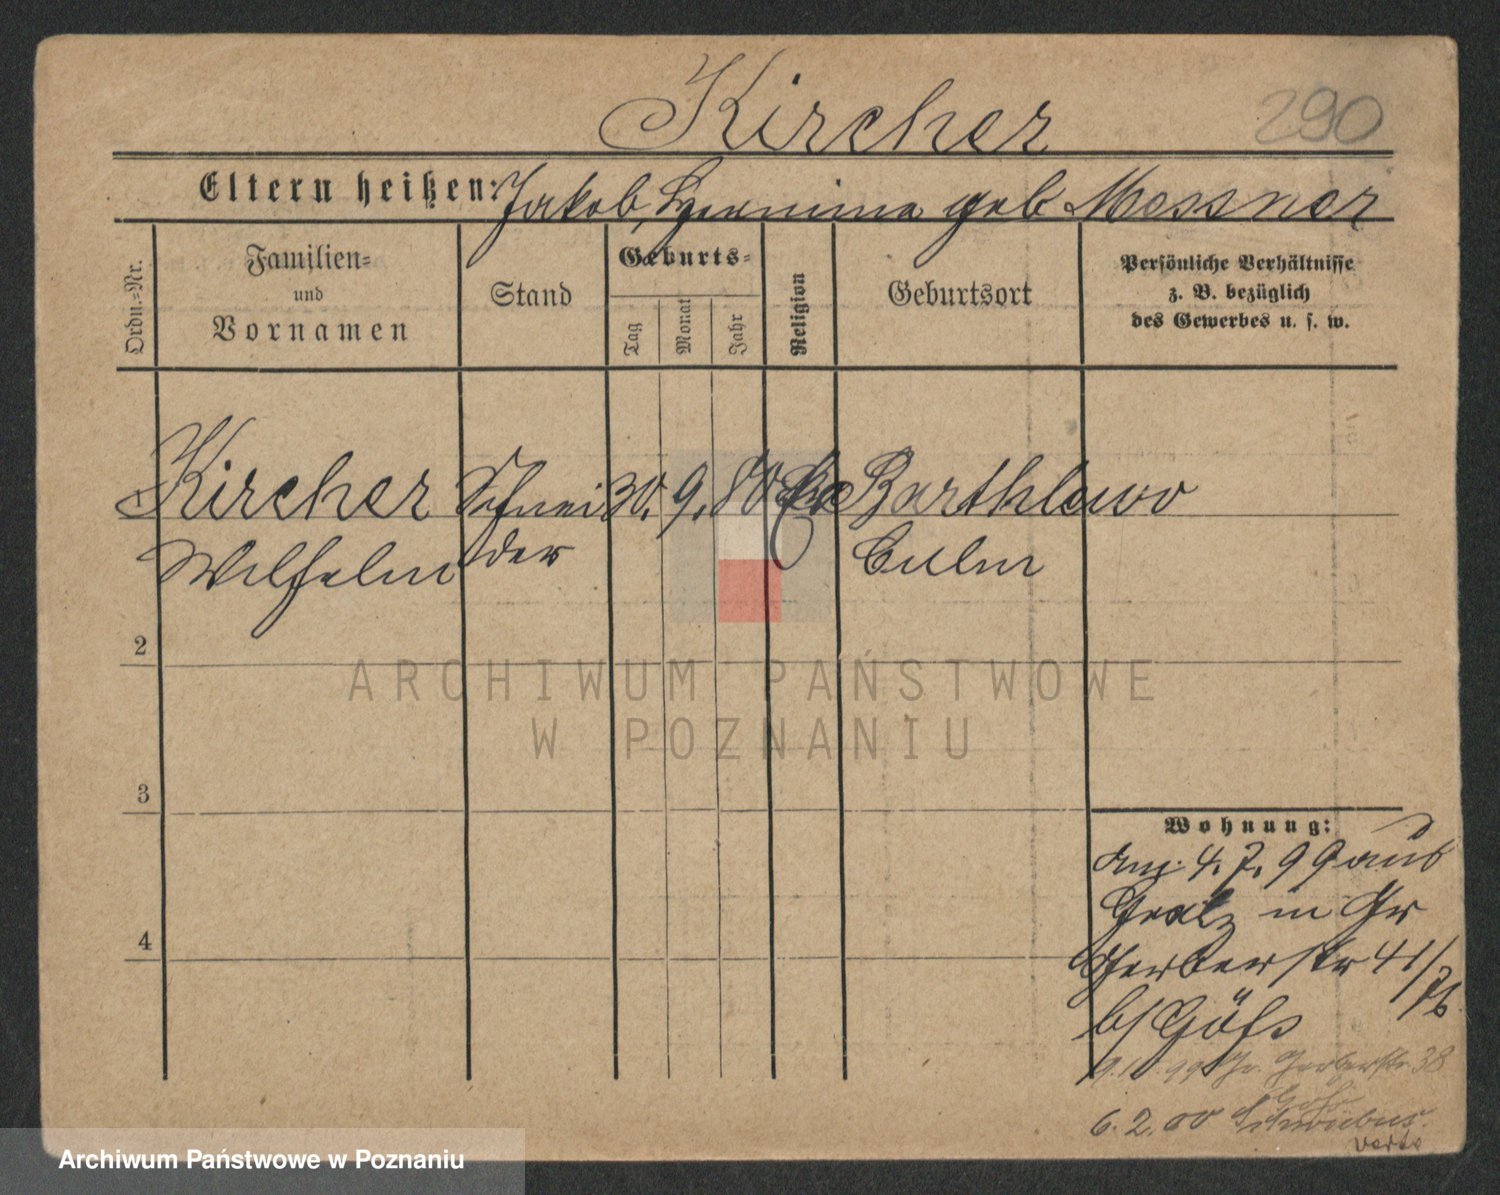 Kircher 290
Eltern heißen: Jakob, geb Messner
Ordn.=Nr.
Familien=
und
Vornamen
Stand
Geburts=
Tag
Monat
Jahr
Religion
Geburtsort
Persönliche Verhältnisse
z. B. bezüglich
des Gewerbes u. s. w.
Kircher Schnei 30. 9. 80 Barthlewo
Wilhelm der Culm
2
ARCHIWUM PAŃSTWOWE
W POZNANIU
3
Wohnung:
Anz. 4. 7. 99 aus
Graetz in Gr
Gerberstr 41/
b/
99 Gr. Gerberstr. 38
6. 2. 00 Schwiebus.
verte
4
Archiwum Państwowe w Poznaniu